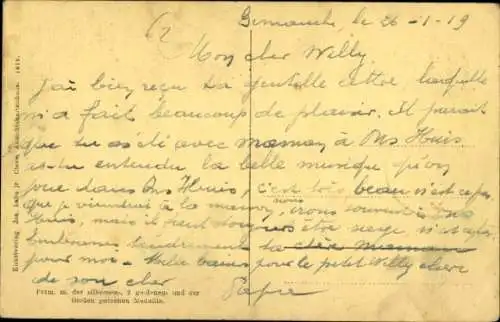 62
Dimanche, le 26-1-19
Mon cher Willy
J'ai bien reçu ta gentille lettre, laquelle
m'a fait beaucoup de plaisir. Il parait
que tu as été avec maman à Ons Huis
as-tu entendu la belle musique qu'on
joue dans Ons Huis, c'est très beau n'est ce pas,
que je viendrai à la maison, nous irons souvent à Ons
Huis, mais il faut toujours être sage, n'est ce pas
Embrasses tendrement ta chère maman
pour moi. Mille baisers pour le petit Willy chéri
de son cher Papa
Präm. m. der silbernen, 2 goldenen und der
Großen goldenen Medaille.